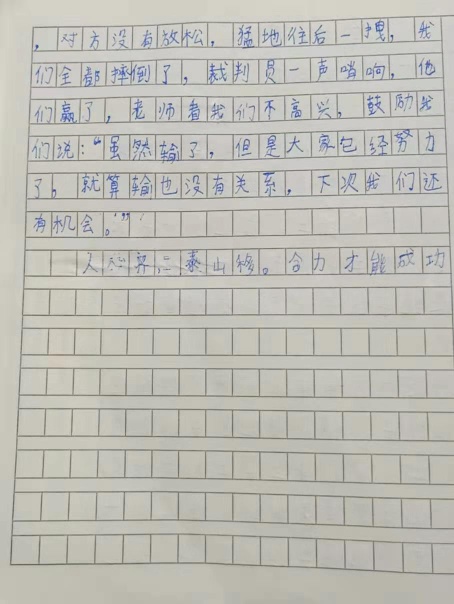 ，对方没有放松，猛地往后一拽，我
们全都摔倒了，裁判员一声哨响，他
们赢了，老师看我们不高兴，鼓励我
们说：“虽然输了，但是大家已经努力
了。就算输也没有关系，下次我们还
有机会。”
人心齐，泰山移。合力才能成功